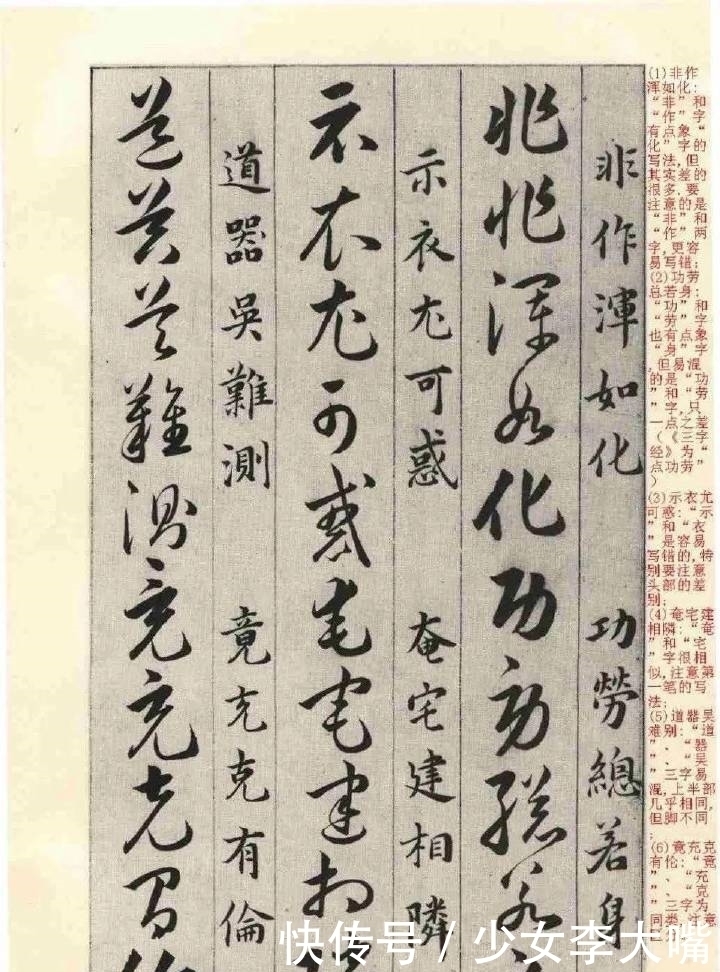 (1)非作
浑如化:
“非”和
“作”字
有点象“
化”字的
写法,但
其实差的
很多.要
注意的是
“非”和
“作”两
字,更容
易写错;
(2)功劳
总若身:
“功”和
“劳”字
也有点象
“身”字
,但易混
的是“功
”和“劳
”字,只
一点之差
(《三字
经》为“
点功劳”
)
(3)示衣尤
可惑:“示
”和“衣
”是容易
写错的,特
别要注意
头部的差
别;
(4)奄宅建
相隣:“奄
”和“宅
”字很相
似,注意第
一笔的写
法;
(5)道器吴
难别:“道
”、“器
”、“吴
”三字易
混,上半部
几乎相同,
但脚不同
;
(6)竟充克
有伦:“竟
”、“充
”、“克
”三字为
同类,注意
非作渾如化 功勞總若身
非作渾如化功勞總若
示衣尤可惑 奄宅建相隣
示衣尤可惑奄宅建相
道器吳難測 竟充克有倫
道器吳難測竟充克有
快传号 / 少女李大嘴